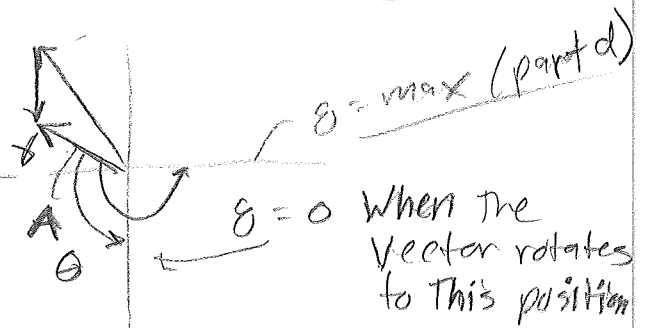 ε = max (part d)
A
θ
ε = 0 When The
Vector rotates
to This position